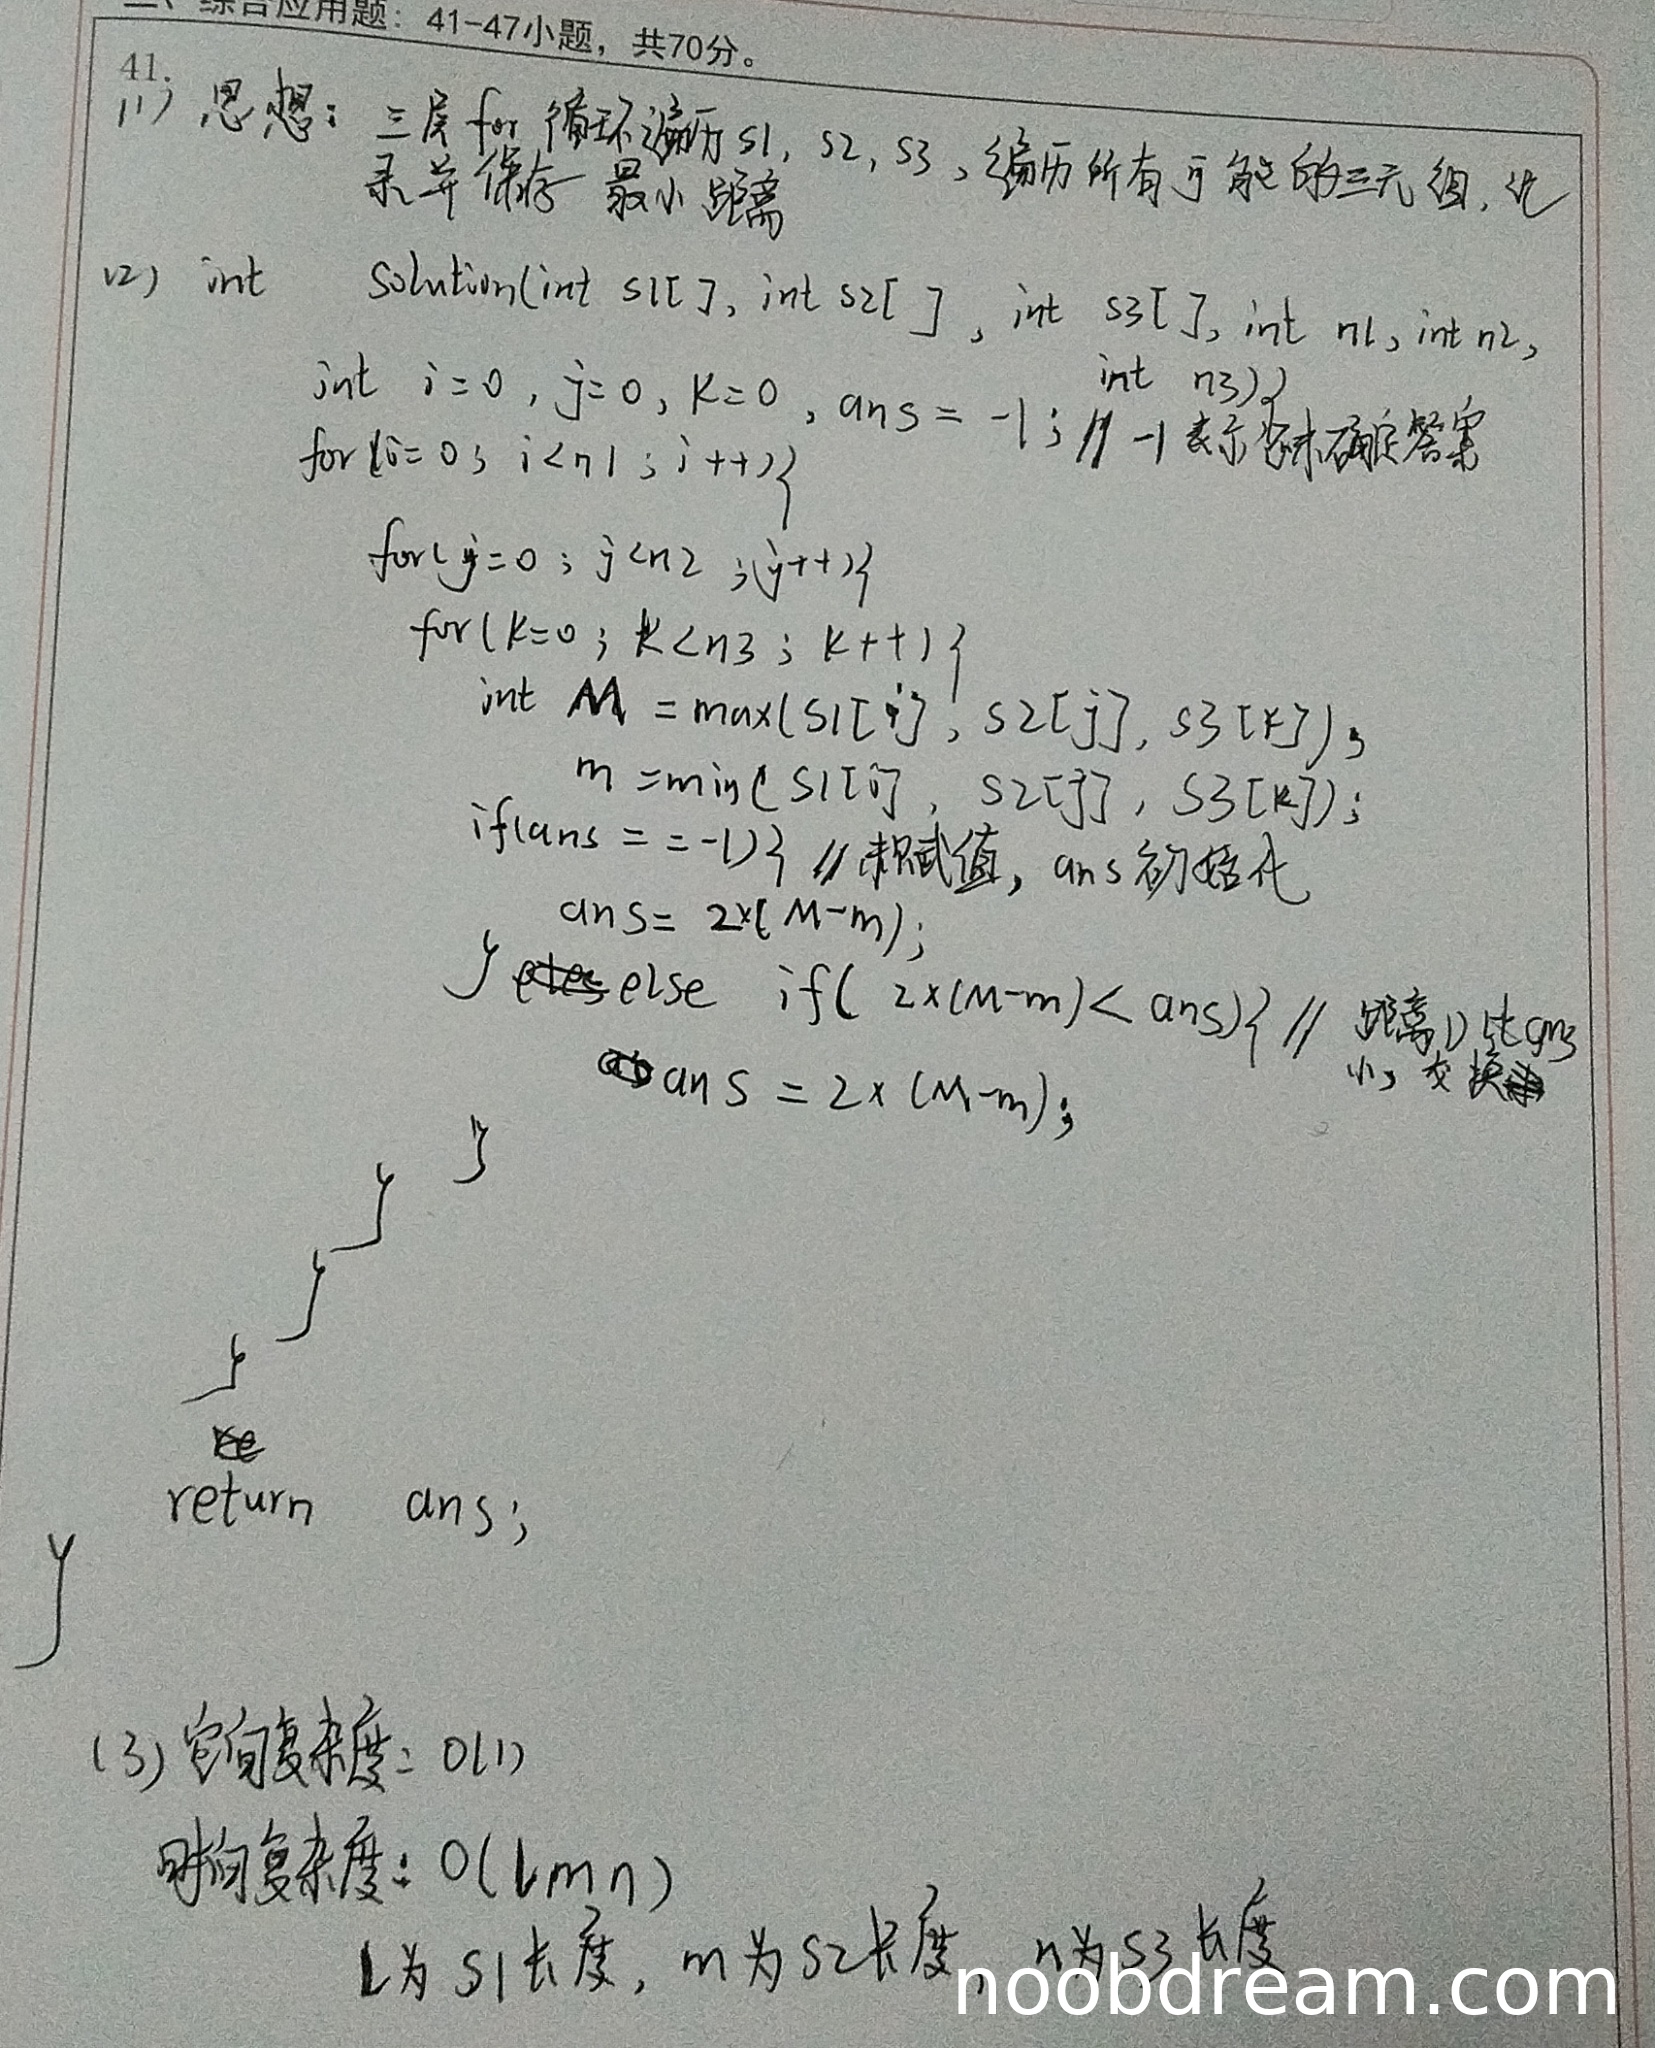 综合应用题：41-47小题，共70分。
41.
(1) 思想：三层for循环遍历S1, S2, S3，遍历所有可能的三元组，记
录并保存最小距离
(2) int Solution(int S1[], int S2[], int S3[], int n1, int n2,
int n3){
int i=0, j=0, k=0, ans = -1; // -1表示尚未确定答案
for(i=0; i<n1; i++){
for(j=0; j<n2; j++){
for(k=0; k<n3; k++){
int M = max(S1[i], S2[j], S3[k]);
m = min(S1[i], S2[j], S3[k]);
if(ans == -1){ // 未赋值，ans初始化
ans = 2×(M-m);
} else if( 2×(M-m) < ans){ // 距离D比ans
小，交换
ans = 2×(M-m);
}
}
}
}
return ans;
}
(3) 空间复杂度：O(1)
时间复杂度：O(Lmn)
L为S1长度，m为S2长度，n为S3长度
noobdream.com